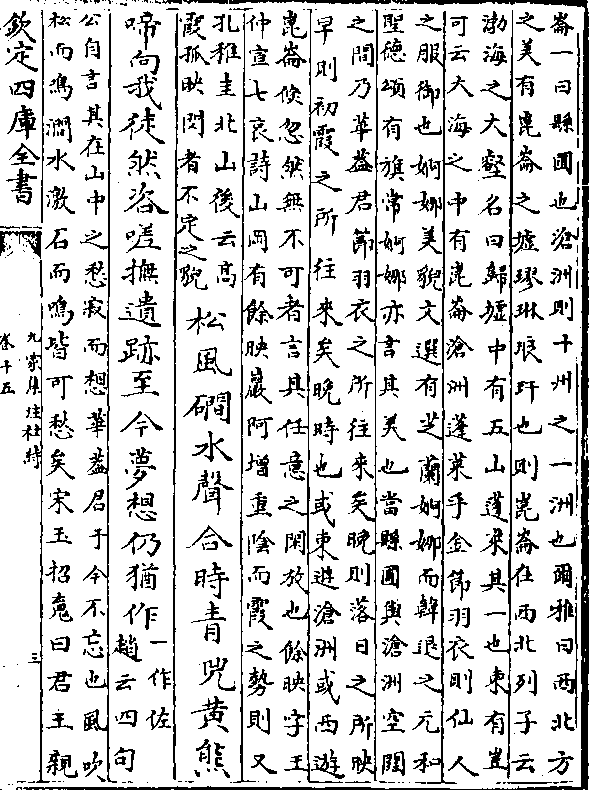 崙一曰縣圃也滄洲則十州之一洲也爾雅曰西北方
之美有崑崙之墟璆琳琅玕也則崑崙在西北列子云
渤海之大壑名曰歸墟中有五山蓬萊其一也東有豈
可云大海之中有崑崙滄洲蓬萊乎金節羽衣則仙人
之服御也婀娜美貌文選有芝蘭婀娜而韓退之元和
聖德頌有旗常婀娜亦言其美也當縣圃與滄洲空闊
之間乃華蓋君節羽衣之所往來矣晚則落日之所映
早則初霞之所往來矣晚時也或東遊滄洲或西遊
崑崙倐忽然無不可者言其任意之閑放也餘映字王
仲宣七哀詩山岡有餘映巖阿增重陰而霞之勢則又
孔稚圭北山後云高
霞孤映閃者不定之貌
松風磵水聲合時青兕黃熊
啼向我徒然咨嗟撫遺跡至今夢想仍猶作
一作佐
趙云四句
公自言其在山中之愁寂而想華蓋君于今不忘也風吹
松而鳴澗水激石而鳴皆可愁矣宋玉招䰟曰君王親
欽定四庫全書
九家集註杜詩
卷十五
三